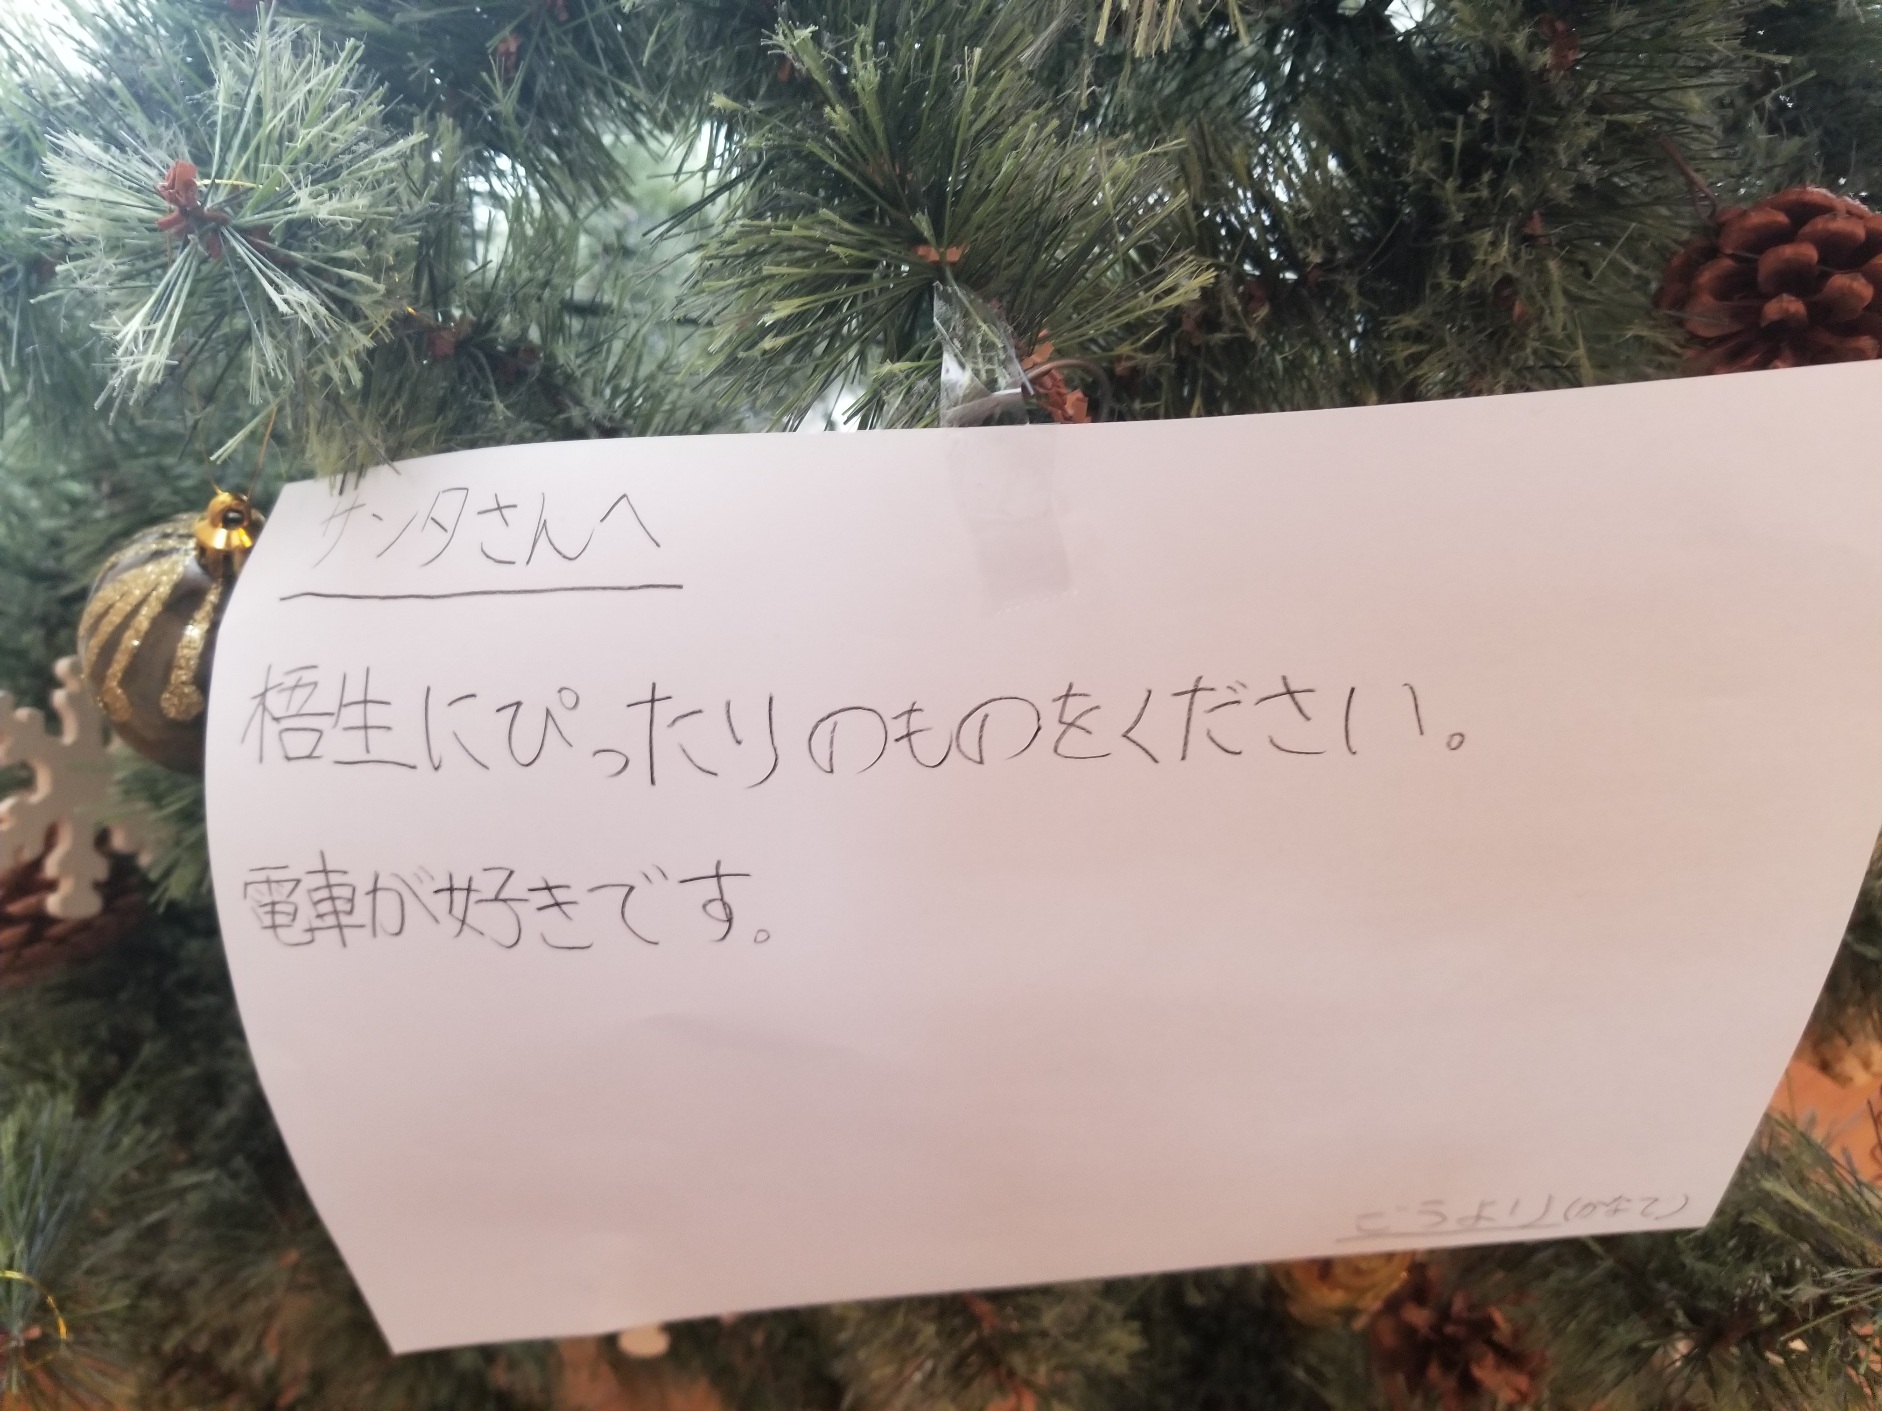 サンタさんへ
梧生にぴったりのものをください。
電車が好きです。
ごうより(かなで)